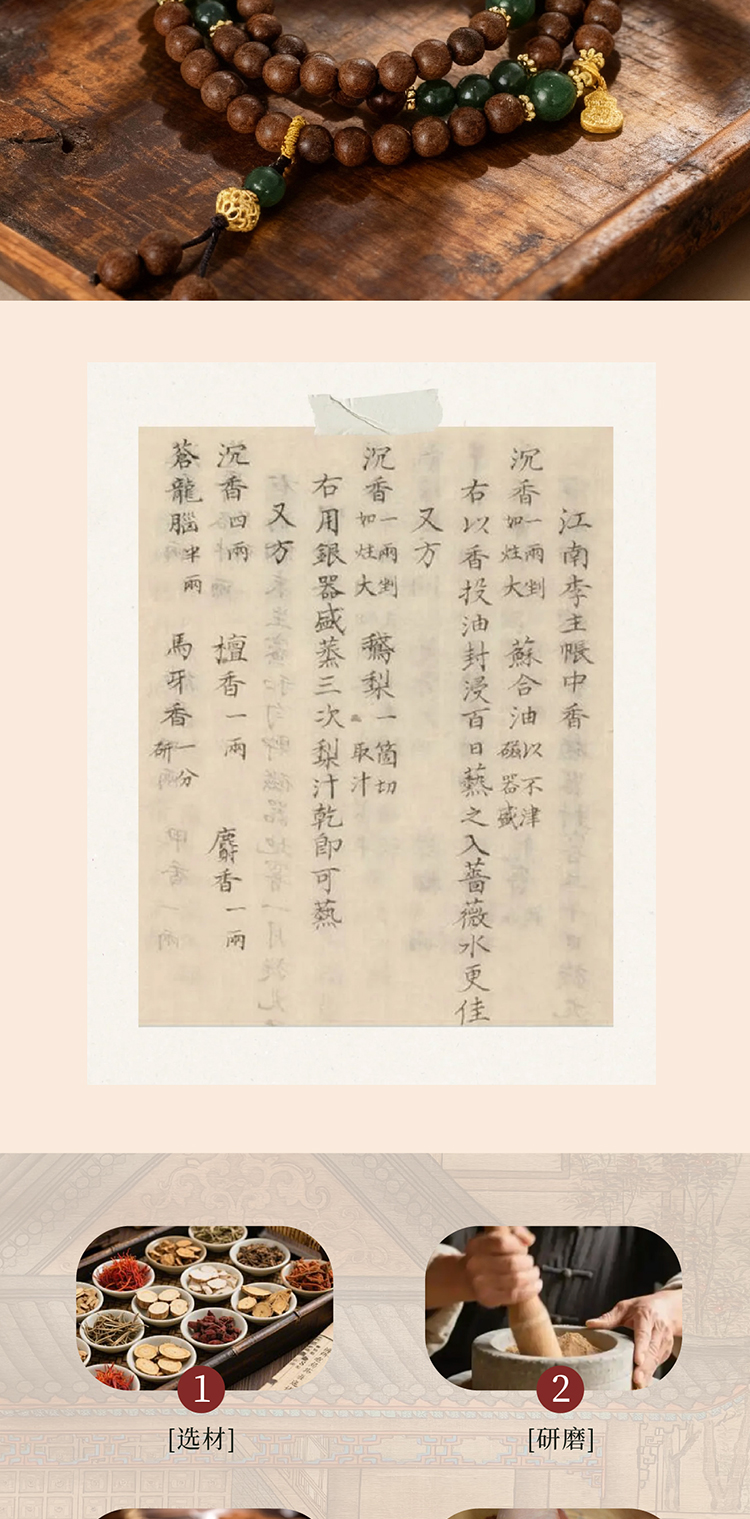 江南李主帳中香
沉香一兩剉如炷大 蘇合油以不津磁器盛
右以香投油封浸百日爇之入薔薇水更佳
又方
沉香一兩剉如炷大 鵝梨一箇切取汁
右用銀器盛蒸三次梨汁乾即可爇
又方
沉香四兩 檀香一兩 麝香一兩
蒼龍腦半兩 馬牙香一分研
1
2
[选材]
[研磨]